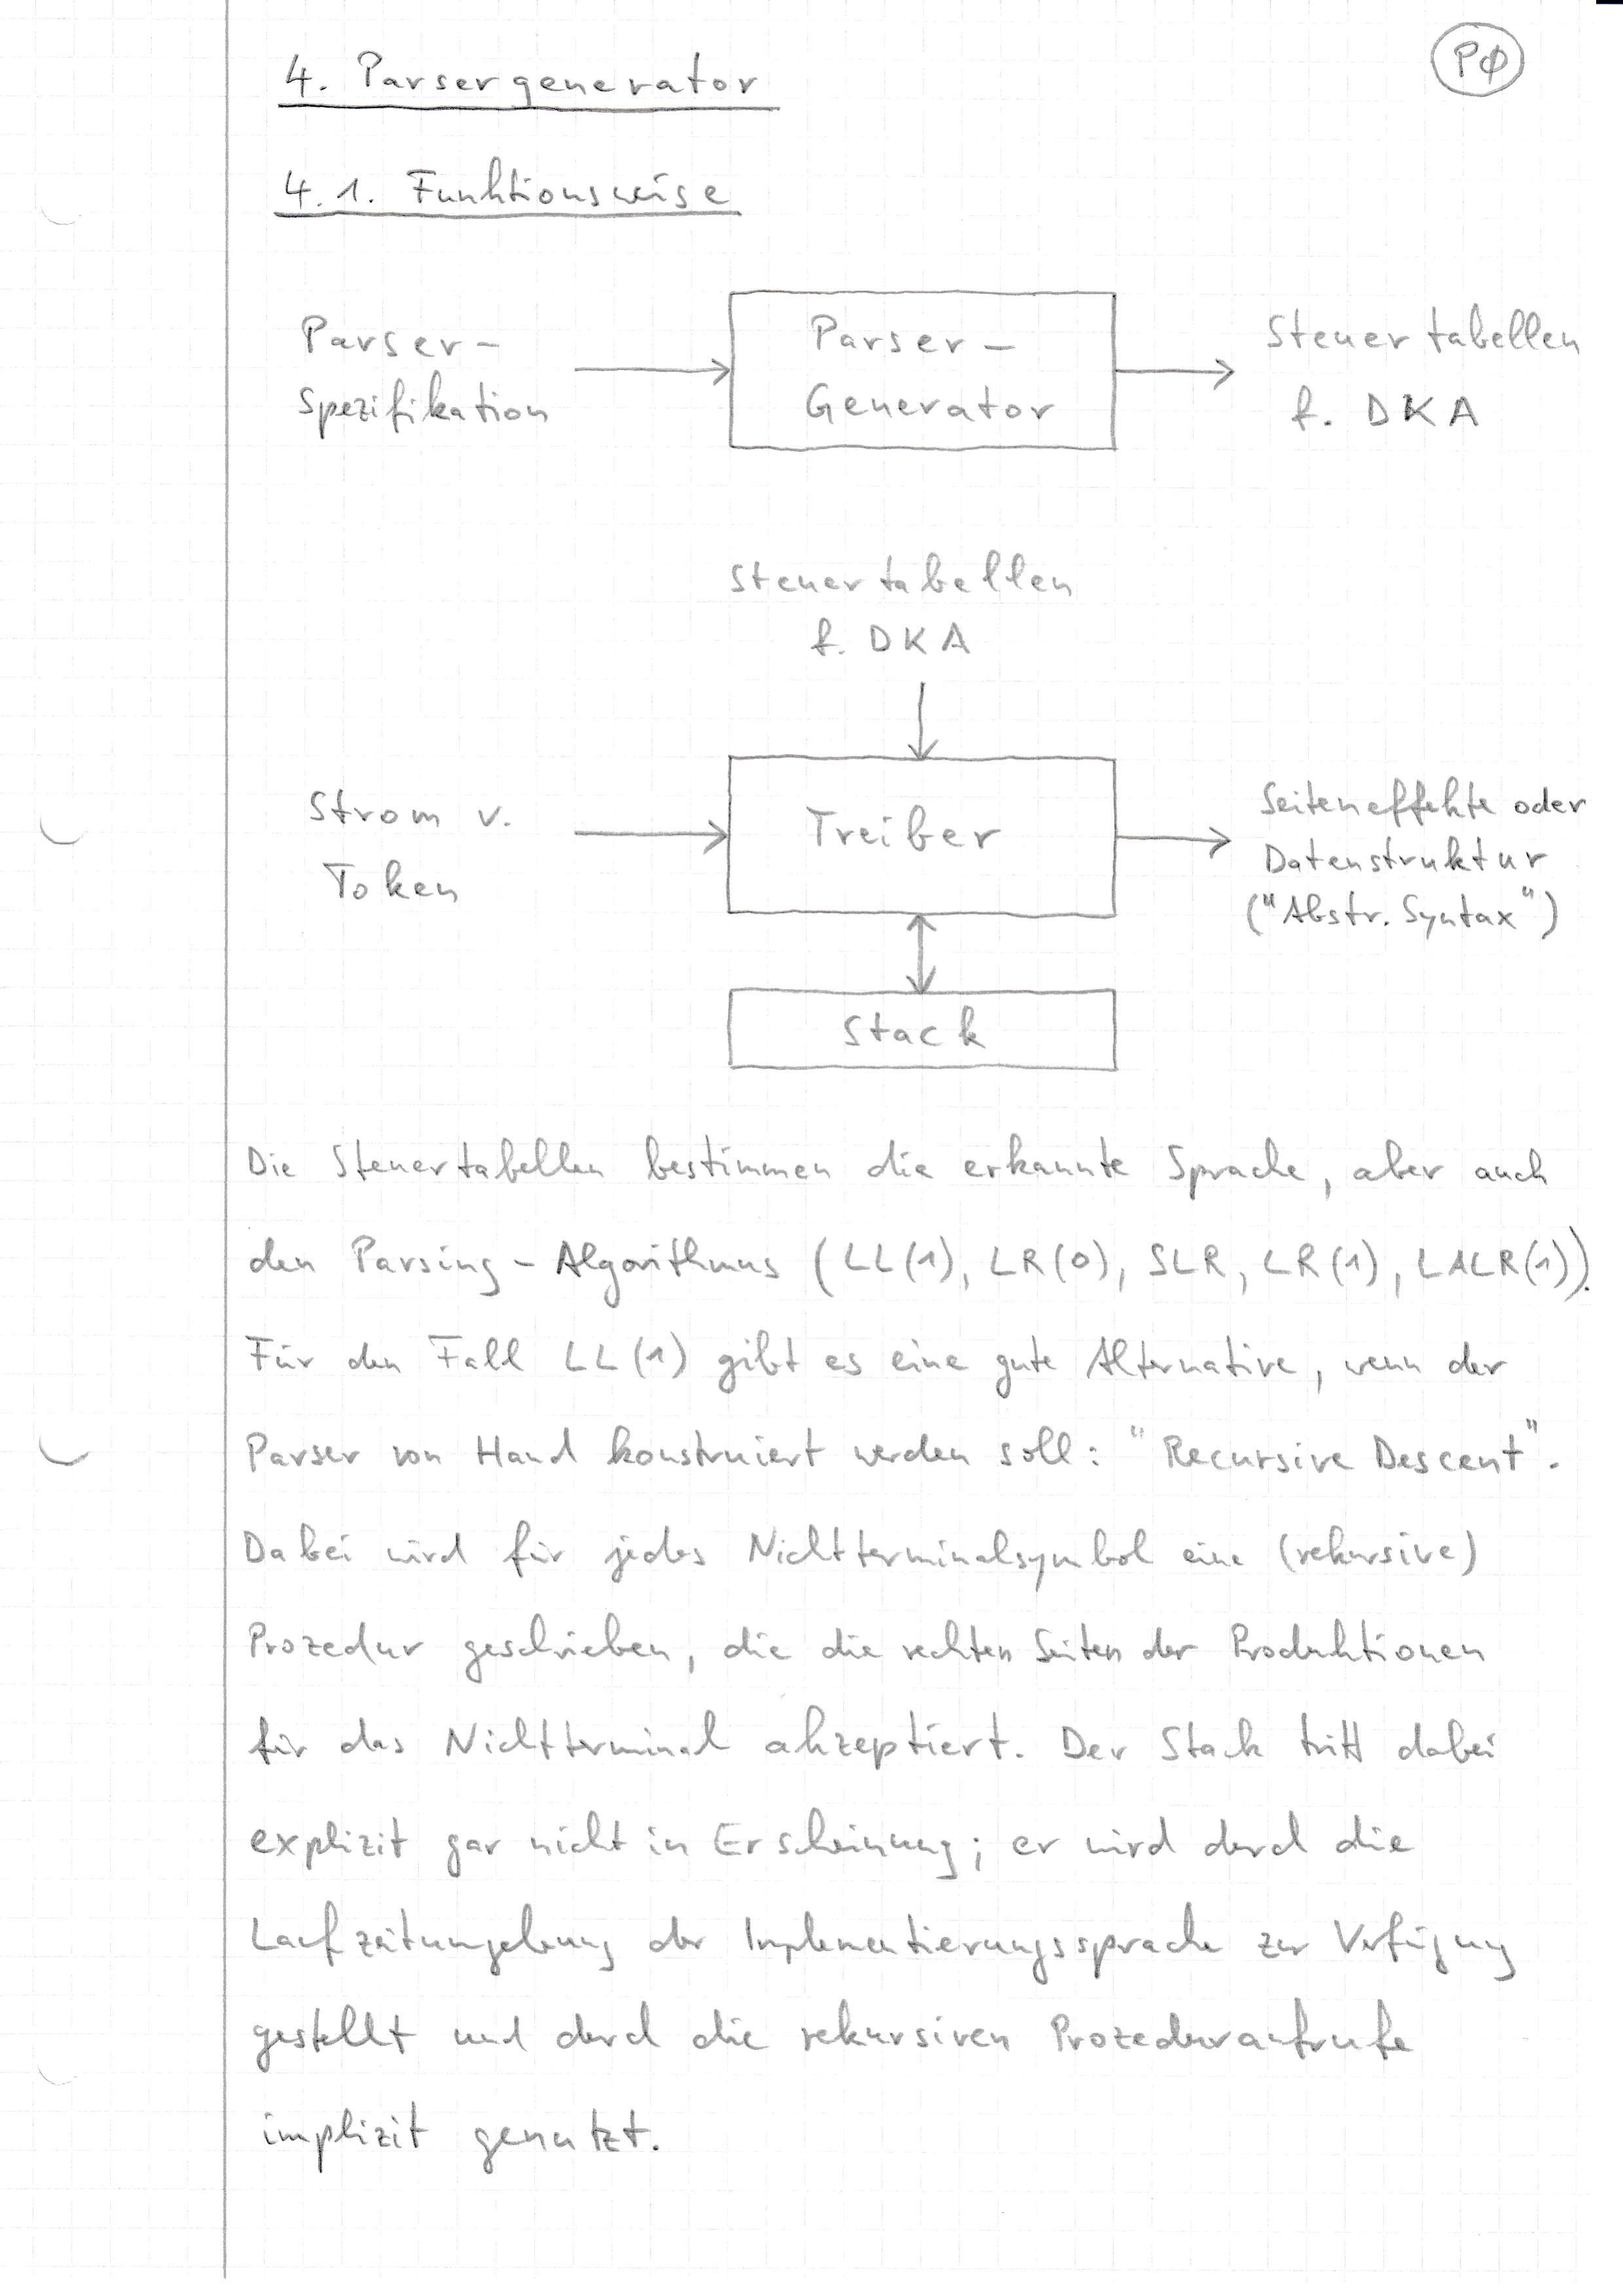 PØ
4. Parsergenerator
4.1. Funktionsweise
Parser-
Spezifikation
Parser-
Generator
Steuertabellen
f. DKA
Steuertabellen
f. DKA
Strom v.
Token
Treiber
Seiteneffekte oder
Datenstruktur
("Abstr. Syntax")
Stack
Die Steuertabellen bestimmen die erkannte Sprache, aber auch
den Parsing-Algorithmus (LL(1), LR(0), SLR, LR(1), LALR(1)).
Für den Fall LL(1) gibt es eine gute Alternative, wenn der
Parser von Hand konstruiert werden soll: "Recursive Descent".
Dabei wird für jedes Nichtterminalsymbol eine (rekursive)
Prozedur geschrieben, die die rechten Seiten der Produktionen
für das Nichtterminal akzeptiert. Der Stack tritt dabei
explizit gar nicht in Erscheinung; er wird durch die
Laufzeitumgebung der Implementierungssprache zur Verfügung
gestellt und durch die rekursiven Prozeduraufrufe
implizit genutzt.